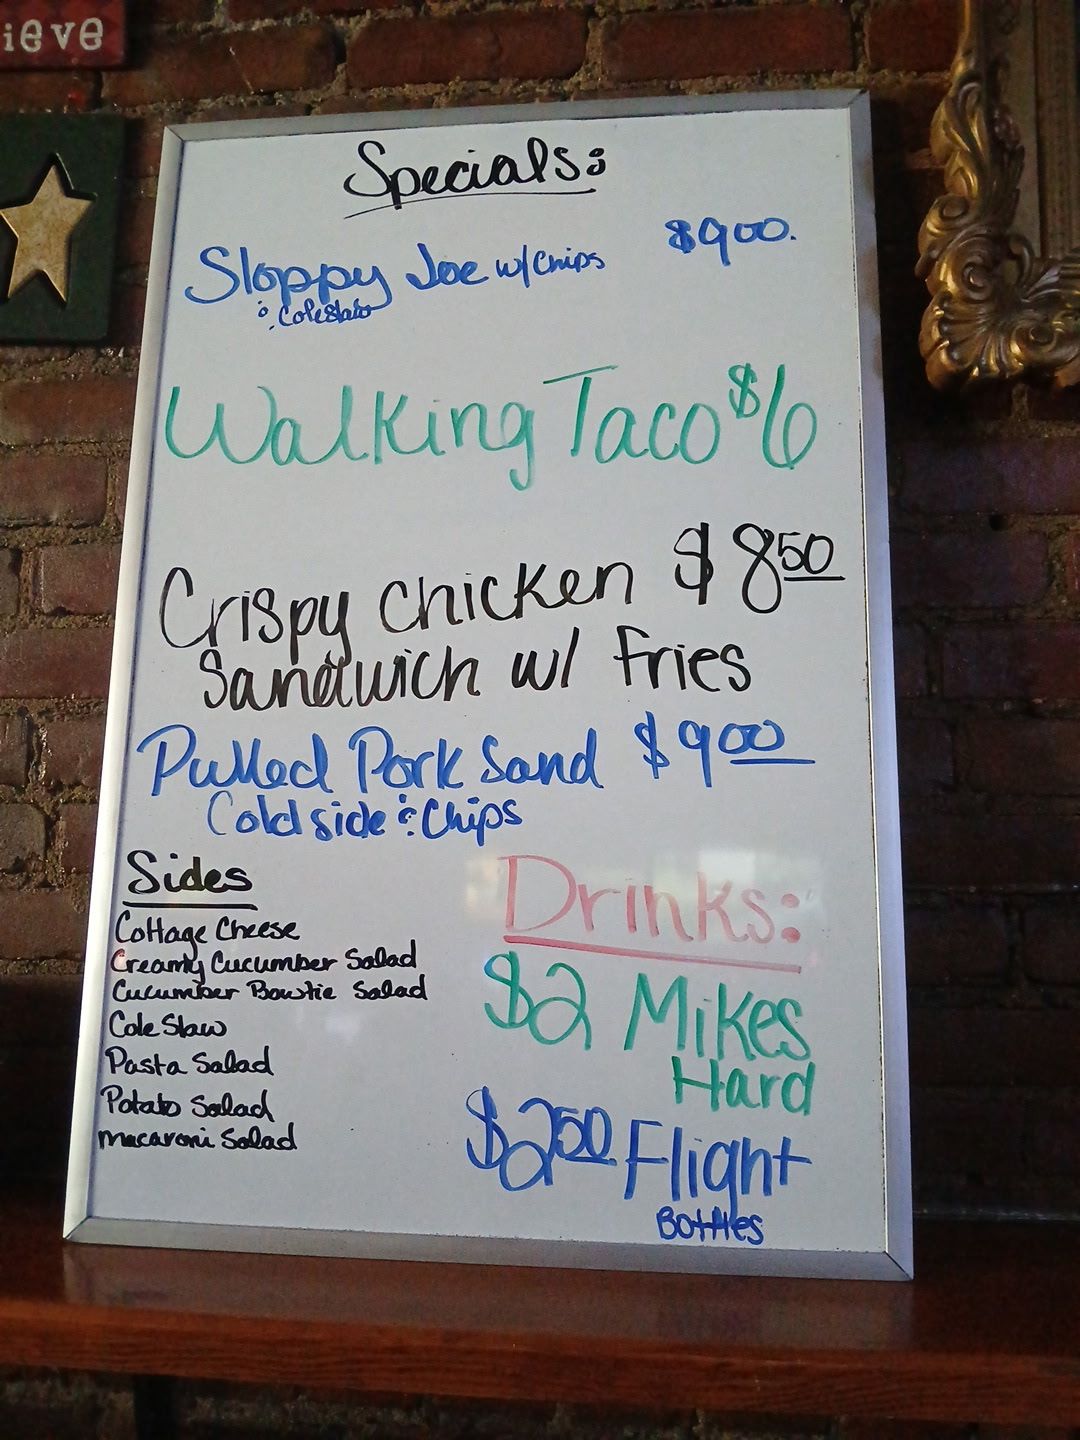 ieve
Specials:
Sloppy Joe w/Chips $9.00.
& Coleslaw
Walking Taco $6
Crispy Chicken $8.50
Sandwich w/ Fries
Pulled Pork Sand $9.00
Cold side & Chips
Sides
Cottage Cheese
Creamy Cucumber Salad
Cucumber Bowtie Salad
Cole Slaw
Pasta Salad
Potato Salad
macaroni Salad
Drinks:
$2 Mikes
Hard
$2.50 Flight
Bottles